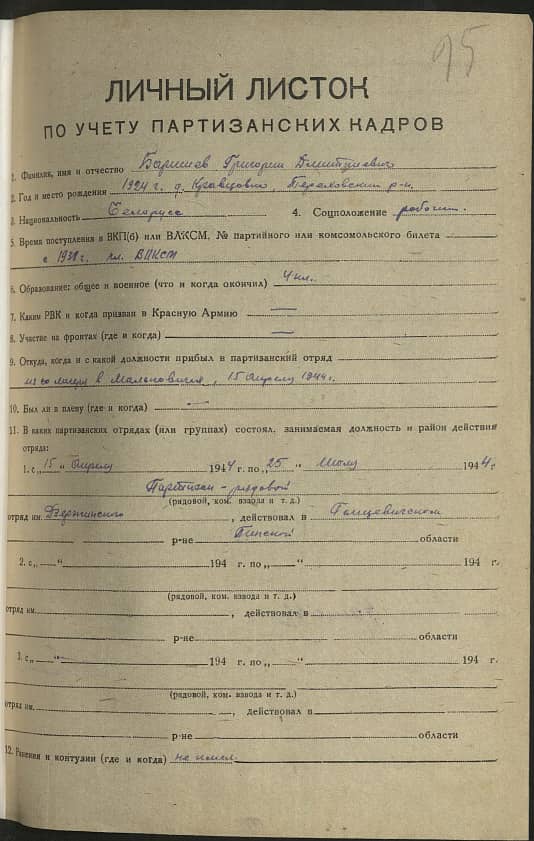 95
ЛИЧНЫЙ ЛИСТОК
ПО УЧЕТУ ПАРТИЗАНСКИХ КАДРОВ
1. Фамилия, имя и отчество Григорий Дмитриевич
2. Год и место рождения 1924 г. д.
3. Национальность Беларусс 4. Соцположение рабочий
5. Время поступления в ВКП(б) или ВЛКСМ, № партийного или комсомольского билета
с чл. ВЛКСМ
6. Образование: общее и военное (что и когда окончил) 4 кл.
7. Каким РВК и когда призван в Красную Армию —
8. Участие на фронтах (где и когда) —
9. Откуда, когда и с какой должности прибыл в партизанский отряд
в 15 Апреля 1944 г.
10. Был ли в плену (где и когда) —
11. В каких партизанских отрядах (или группах) состоял, занимаемая должность и район действия
отряда:
1. с „15„ Апреля 1944 г. по „25 " Июля 1944 г.
Партизан - рядовой
(рядовой, ком. взвода и т. д.)
отряд им. Дзержинского, действовал в Ганцевичском
р-не Пинской области
2. с „ " 194 г. по „ " 194 г.
(рядовой, ком. взвода и т. д.)
отряд им. , действовал в
р-не области
3. с „ " 194 г. по „ " 194 г.
(рядовой, ком. взвода и т. д.)
отряд им. , действовал в
р-не области
12. Ранения и контузии (где и когда) не имел